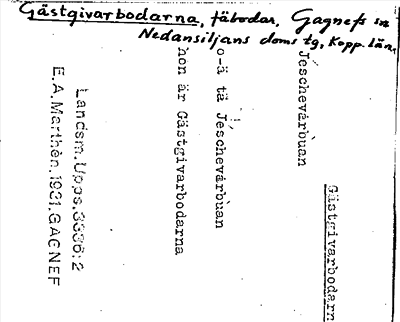 Gästgivarbodarna, fäbodar, Gagnefs sn
Nedansiljans doms tg, Kopp. län.
Gästgivarbodarn
Jéschevárbùan
o-ä tä Jéschevárbùan
hon är Gästgivarbodarna
Landsm.Upps.3336:2
E.A.Marthén.1931.GAGNEF